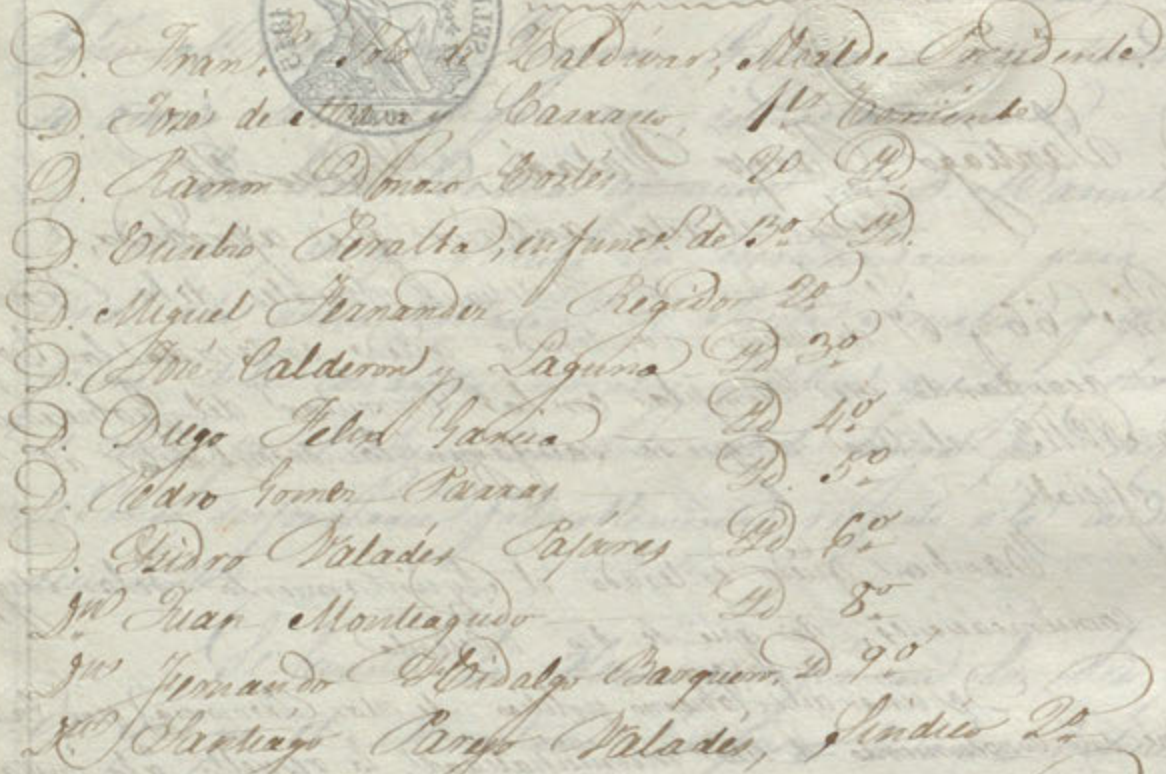 D. Fran.co José de Valdivar, Alcalde Presidente.
D. José de y Carrasco, 1.er Teniente
D. Ramon Donoso Cortés 2º Yd.
D. Eusebio Peralta, en func.s de 3º Yd.
D. Miguel Fernandez Regidor 2º
D. José Calderon y Laguna Yd 3º
D. Diego Felix Garcia Yd 4º
D. Pedro Gomez Parras Yd. 5º
D. Ysidro Valadés Pajares Yd 6º
D.n Juan Monteagudo Yd 8º
D.n Fernando Hidalgo Barquero, Yd 9º
Santiago Parejo Valadés, Sindico 2º